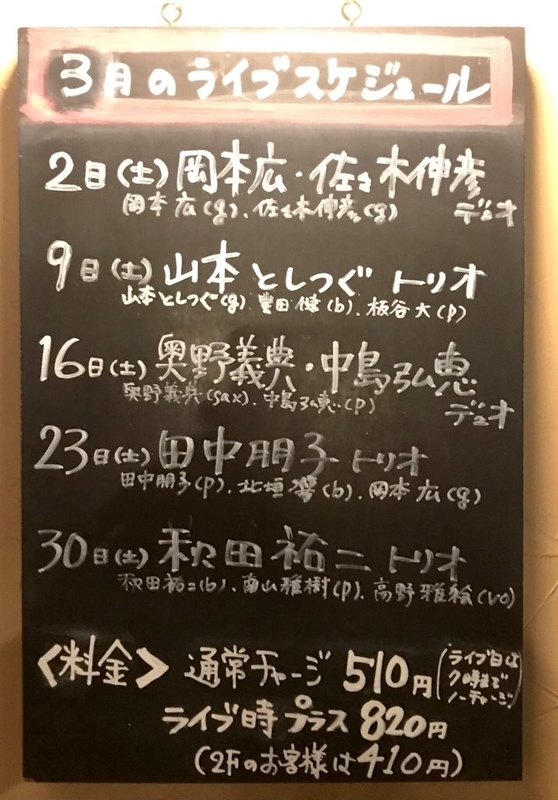 3月のライブスケジュール
2日(土)岡本広・佐々木伸彦
デュオ
岡本広(g)、佐々木伸彦(g)
9日(土)山本としつぐ トリオ
山本としつぐ(g)、豊田健(b)、板谷大(p)
16日(土)奥野義典・中島弘恵
デュオ
奥野義典(sax)、中島弘恵(p)
23日(土)田中朋子トリオ
田中朋子(p)、北垣響(b)、岡本広(g)
30日(土)秋田祐二 トリオ
秋田祐二(b)、南山雅樹(p)、高野雅絵(vo)
<料金> 通常チャージ 510円(ライブ日は
7時まで
ノーチャージ)
ライブ時 プラス 820円
(2Fのお客様は410円)